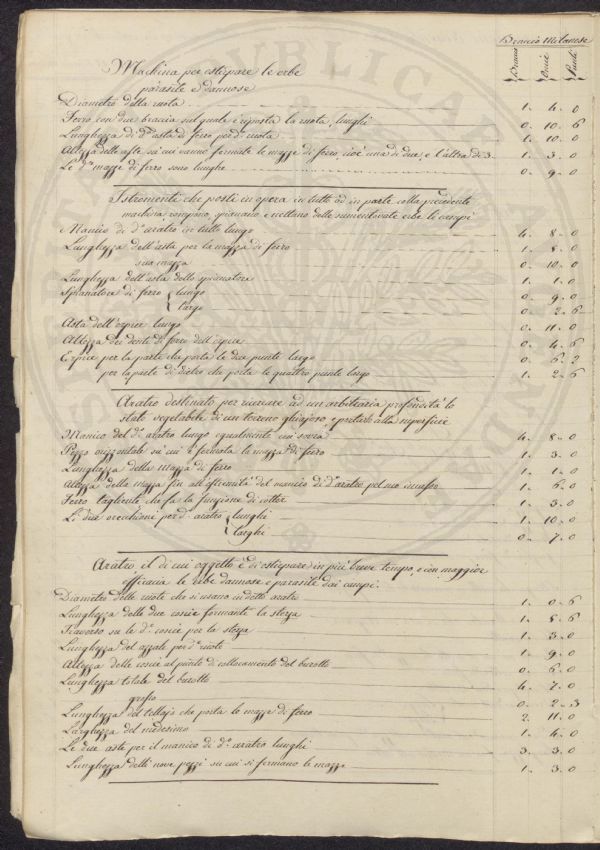 Braccio Milanese
Braccia Oncie Punti
Machina per estirpare le erbe
parasite e dannose
Diametro della ruota 1. 4. 0
Ferro con due braccia sul quale è riposta la ruota, lunghi 0. 10. 6
Lunghezza di d.ª asta di ferro per d.ª ruota 1. 10. 0
Altezza delle aste su cui vanno fermate le mazze di ferro, cioè una di due, e l'altra di 3. 1. 3. 0
Le d.e mazze di ferro sono lunghe 0. 9. 0
Istromenti che posti in opera in tutto od in parte colla precedente
machina, rompono, spianano e nettano dalle summentovate erbe li campi
Manico di d.º aratro in tutto lungo 4. 8. 0
Lunghezza dell'asta per la mazza di ferro 1. 8. 0
sua mazza 0. 10. 0
Lunghezza dell'asta dello spianatore 1. 1. 0
Spianatore di ferro lungo 0. 9. 0
largo 0. 2. 6
Asta dell'erpice lungo 0. 11. 0
Altezza dei denti di ferro dell'erpice 0. 4. 6
Erpice per la parte che porta le due punte largo 0. 6. 3
per la parte di dietro che porta le quattro punte largo 1. 2. 6
Aratro destinato per ricercare ad un'arbitraria profondità lo
stato vegetabile di un terreno ghiajoso e portarlo alla superficie
Manico del d.º aratro lungo egualmente 4. 8. 0
Pezzo orizzontale su cui è fermata la mazza di ferro 1. 3. 0
Lunghezza della mazza di ferro 1. 1. 0
Altezza della mazza fin all'estremità del manico di d.º aratro pel suo 1. 6. 0
Ferro tagliente che fa la funzione di colter 1. 3. 0
Li due orecchioni per d.º aratro lunghi 1. 10. 0
larghi 0. 7. 0
Aratro, il di cui oggetto è di estirpare in più breve tempo, e con maggior
efficacia le erbe dannose e parasite dai campi.
Diametro delle ruote che si usano in detto aratro 1. 0. 6
Lunghezza delle due coscie formanti la sterza 1. 8. 6
Traverso su le d.e coscie per la sterza 1. 3. 0
Lunghezza del assale per d.e ruote 1. 9. 0
Altezza delle coscie al punto di collocamento del burotto 0. 6. 0
Lunghezza totale del burotto 4. 7. 0
grosso 0. 2. 3
Lunghezza del tellajo che porta le mazze di ferro 2. 11. 0
Larghezza del medesimo 1. 4. 0
Le due aste per il manico di d.º aratro lunghi 3. 3. 0
Lunghezza delli nove pezzi su cui si fermano le mazze 1. 3. 0